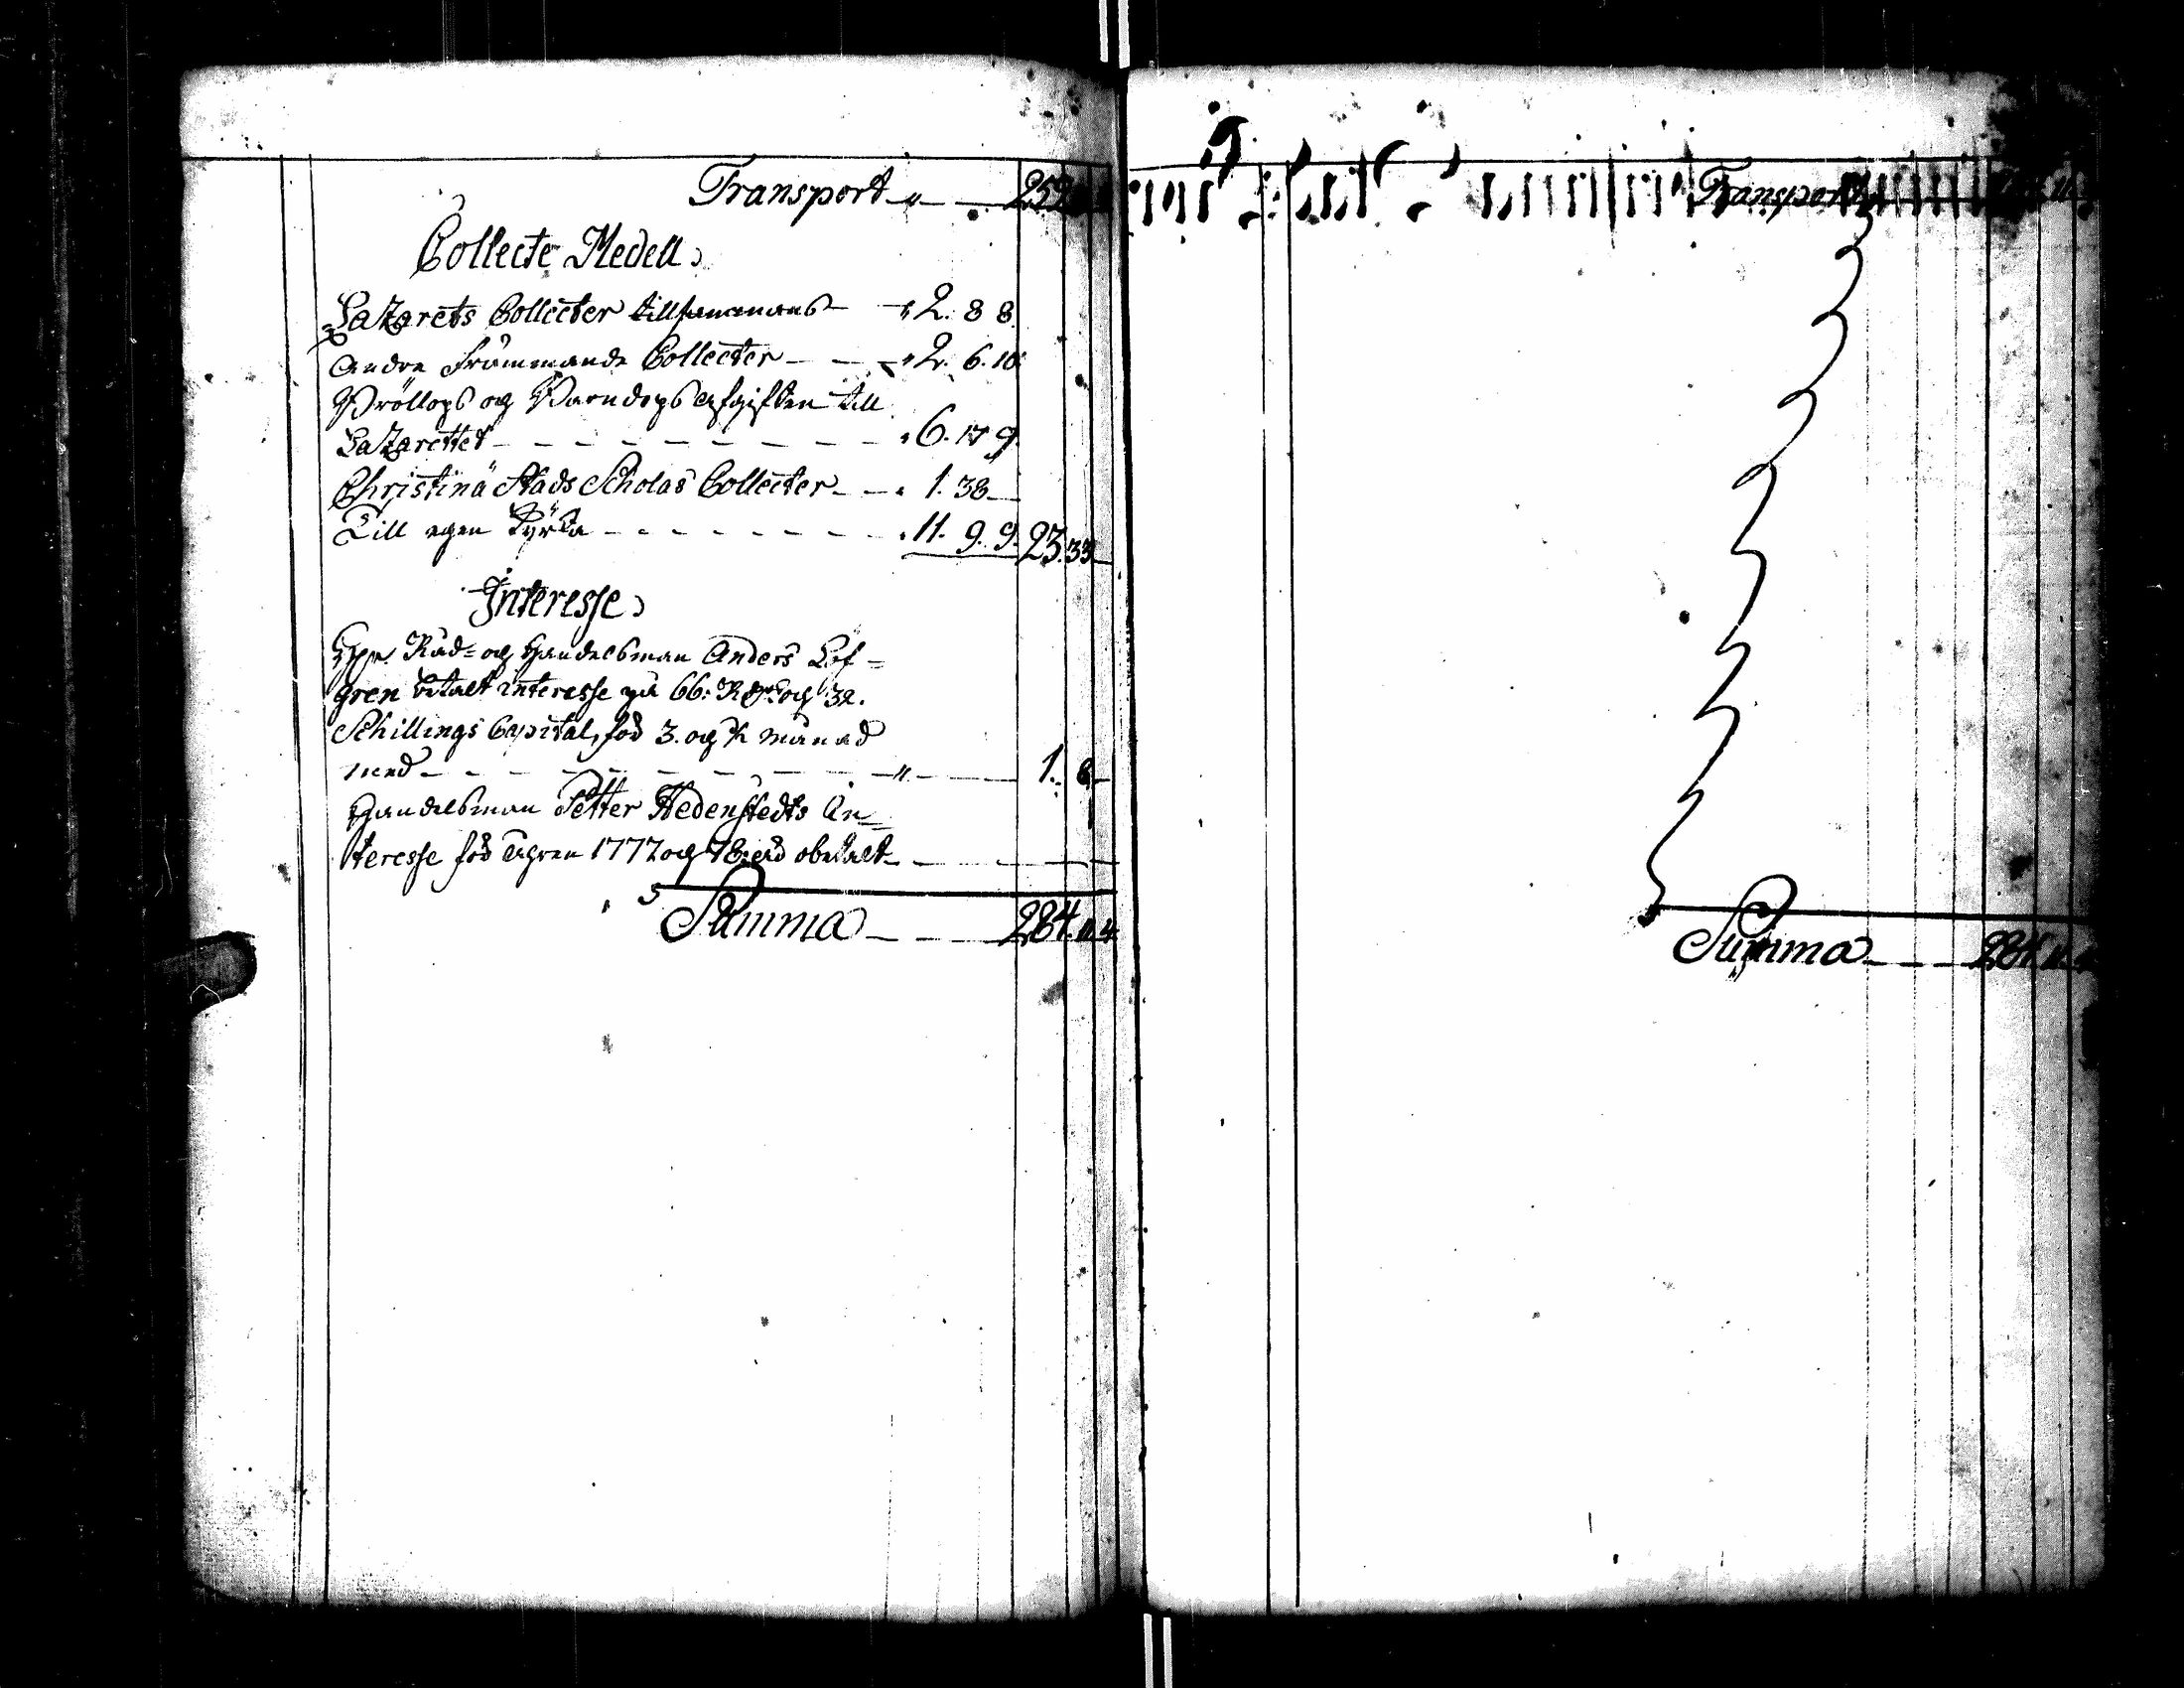 Transport — " — 259.
Collecte Medell
Latzarets Collecter tillsammans — " 2. 8 8.
Andre Främmande Collecter — — " 2. 6. 10.
Bröllops og Barndops Afgiften till
Latzarettet — — — — " 6. 17 9.
Christinä Stads Scholas Collecter — — " 1. 38 —
Till egen Kyrka — — — — " 11. 9. 9. 23. 33 —
Interesse
Hr. Råd- og Handelsman Anders Löf-
gren betalt interesse på 66: R og 32.
Schillings Capital, för 3. og ½ månad
med — — — — " — 1. 8 —
Handelsman Petter Hedenstedts In-
teresse för Åhren 1777 og 78: är obetalt — — —
Summa — — — 284. 11. 4.
Transport
Summa — — — 284. 11.